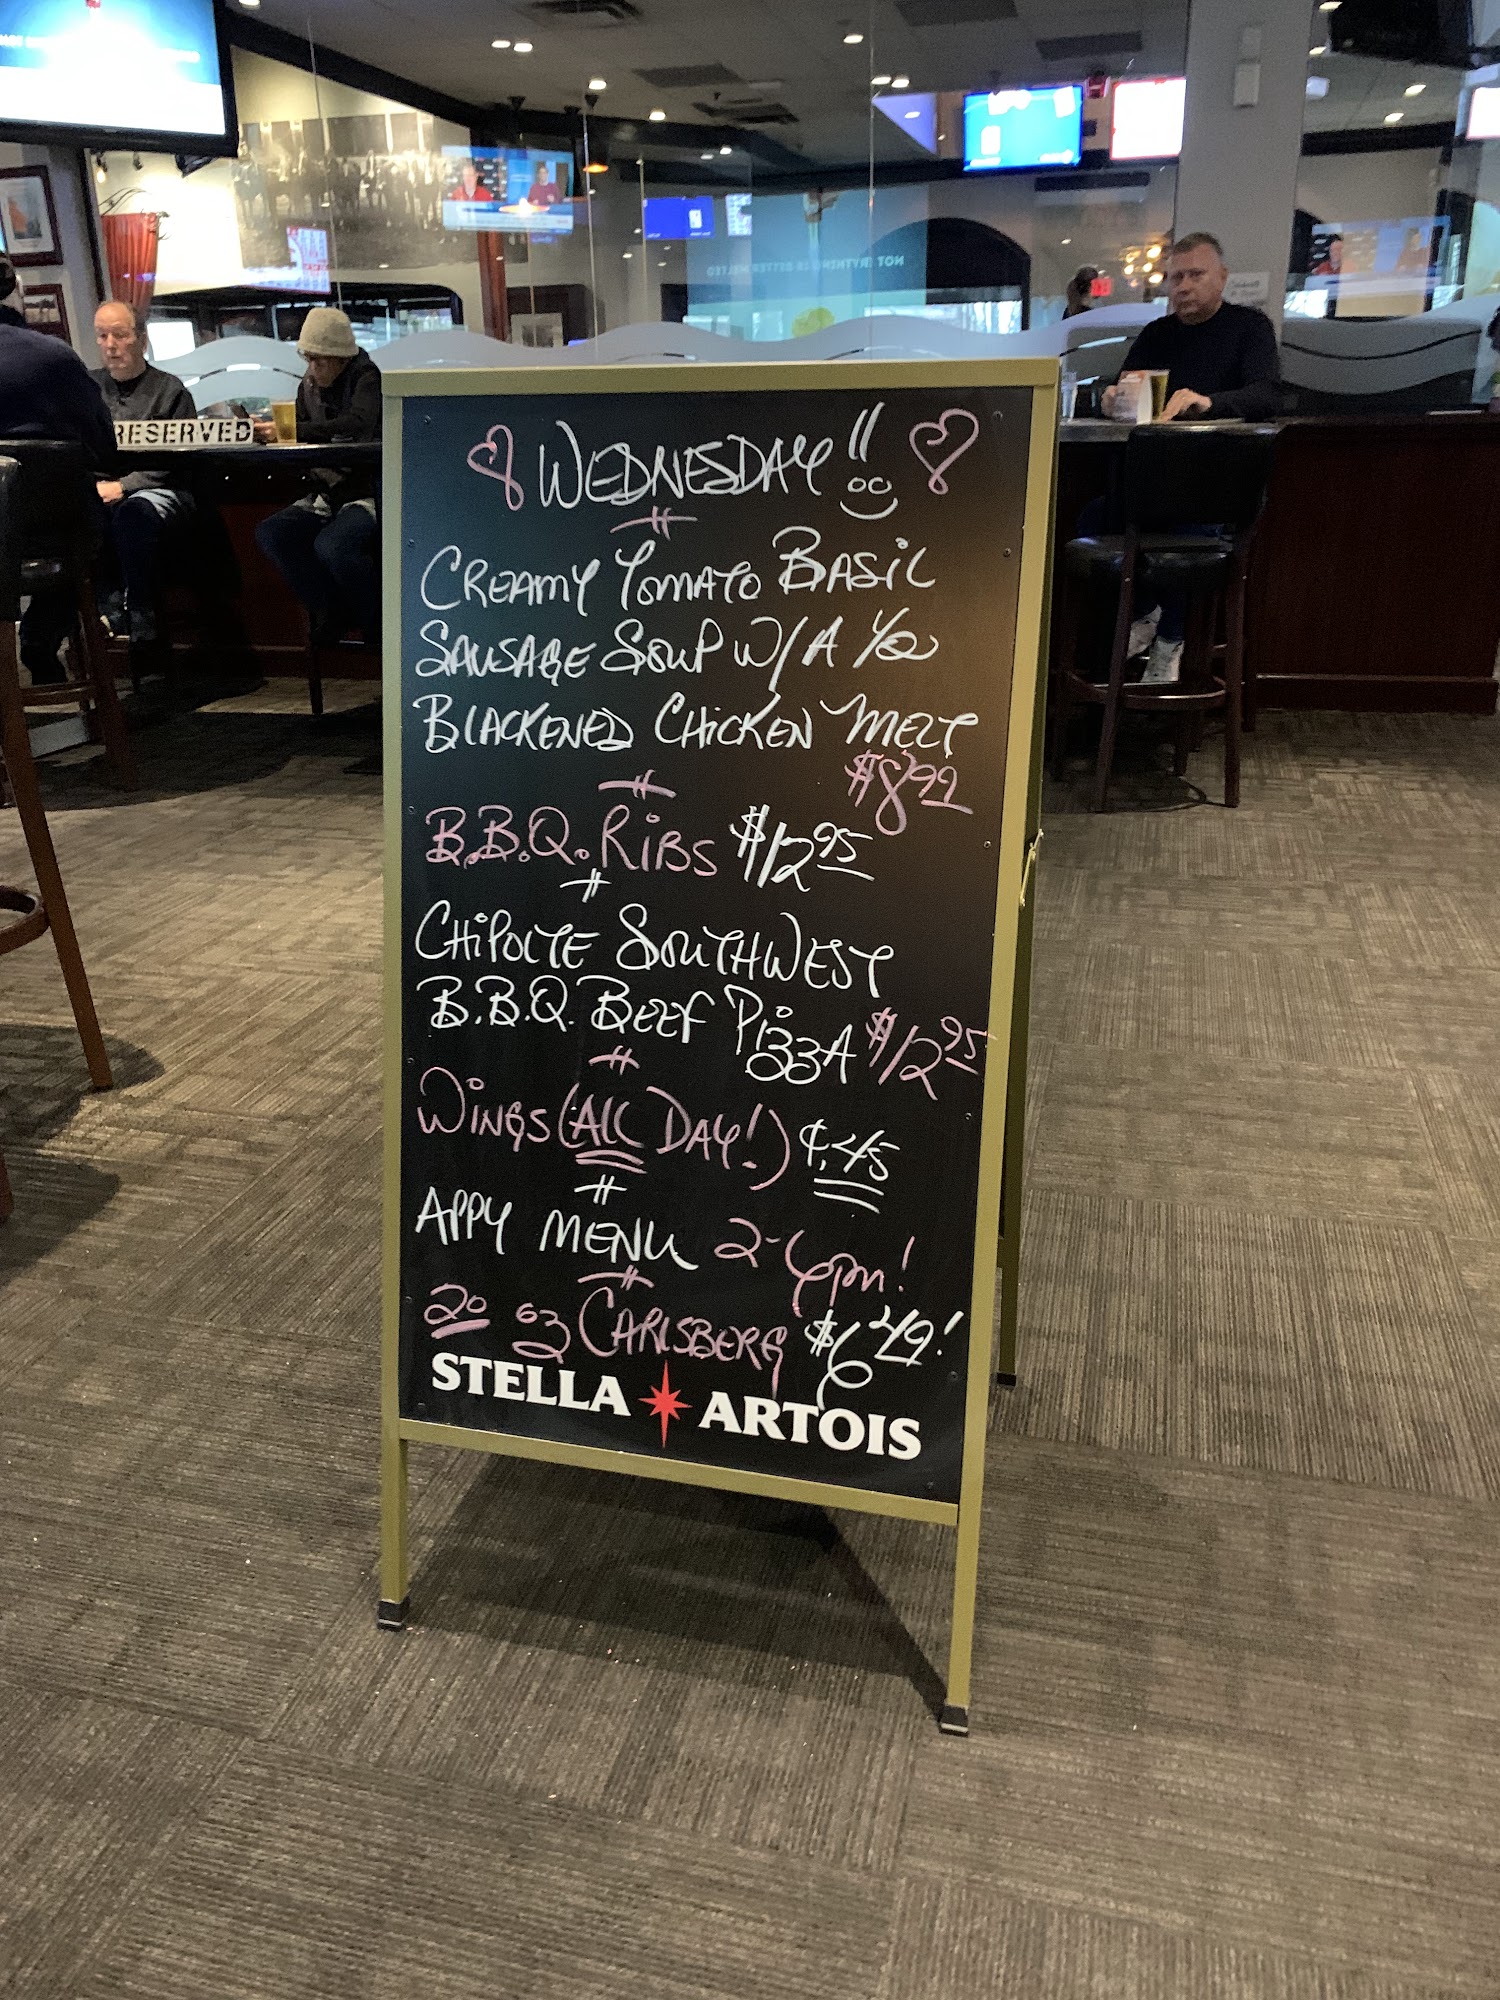 NOT RYTHING IS BETTER MELTED
RESERVED
WEDNESDAY!!
CREAMY TOMATO BASIL
SAUSAGE SOUP W/ A ½
BLACKENED CHICKEN MELT
$8.99
B.B.Q. RIBS $12.95
CHIPOLTE SOUTHWEST
B.B.Q. BEEF PIZZA $12.95
WINGS (ALL DAY!) ¢.45
APPY MENU 2-6pm!
20 oz CARLSBERG $6.49!
STELLA ARTOIS